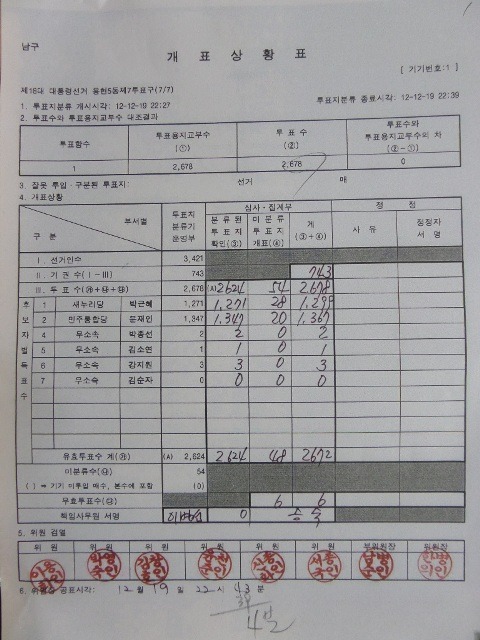 남구
개 표 상 황 표
[ 기기번호:1 ]
제18대 대통령선거 용현5동제7투표구(7/7)
1. 투표지분류 개시시각: 12-12-19 22:27 투표지분류 종료시각: 12-12-19 22:39
2. 투표수와 투표용지교부수 대조결과
투표함수 투표용지교부수 (①) 투 표 수 (②) 투표수와 투표용지교부수의 차 (②-①)
1 2,678 2,678 0
3. 잘못 투입·구분된 투표지: 선거 매
4. 개표상황
구 분 부서별 투표지 분류기 운영부 심사·집계부 정 정
분류된 투표지 확인(③) 미분류 투표지 개표(④) 계 (③+④) 사 유 정정자 서 명
Ⅰ. 선거인수 3,421
Ⅱ. 기 권 수(Ⅰ-Ⅲ) 743 743
Ⅲ. 투 표 수 2,678 (A)2624 54 2678
후보자별득표수
1 새누리당 박근혜 1,271 1,271 28 1,299
2 민주통합당 문재인 1,347 1,347 20 1,367
4 무소속 박종선 2 2 0 2
5 무소속 김소연 1 1 0 1
6 무소속 강지원 3 3 0 3
7 무소속 김순자 0 0 0 0
유효투표수 계 (A) 2,624 2624 48 2672
미분류수 54
( ) ⇒ 기기 미투입 매수, 본수에 포함 (0)
무효투표수 6 6
책임사무원 서명 0
5. 위원 검열
위 원 위 원 위 원 위 원 위 원 위 원 부위원장 위 원 장
6. 위원장 공표시각: 12 월 19 일 22 시 43 분